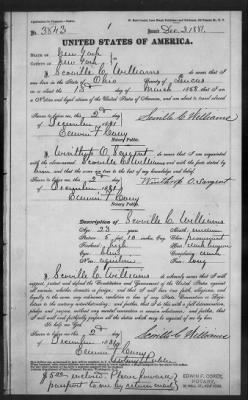 No. 3543
Issued Dec 3 1881
UNITED STATES OF AMERICA.
STATE OF New York
COUNTY OF New York
I, Scoville C. Williams, do swear that I was
born in the State of Ohio, County of Lucas
on the 13th day of March 1858, that I am
a Native and loyal citizen of the United States of America, and am about to travel abroad
Sworn to before me, this 2nd day
of December 1881
Scoville C. Williams
Notary Public.
I, Winthrop O. Sargent, do swear that I am acquainted
with the above named Scoville C. Williams and with the facts stated by
him, and that the same are true to the best of my knowledge and belief.
Sworn to before me, this 2nd day
of December 1881
Winthrop O. Sargent
Notary Public.
Description of Scoville C. Williams
Age: 23 years
Mouth: medium
Stature: 5 feet 10 inches, Eng.
Chin: prominent
Forehead: high
Hair:
Eyes: blue
Complexion:
Nose: aquiline
Face: long
I, Scoville C. Williams, do solemnly swear that I will
support, protect and defend the Constitution and Government of the United States against
all enemies, whether domestic or foreign; and that I will bear true faith, allegiance, and
loyalty to the same, any ordinance, resolution or law of any State, Convention or Legis-
lature to the contrary notwithstanding; and further, that I do this with a full determination,
pledge and purpose, without any mental reservation or evasion whatsoever; and further,
that I will well and faithfully perform all the duties which may be required of me by law.
So help me God.
Sworn to before me, this 2nd day
of December 1881
Scoville C. Williams
Notary Public
$5.00 enclosed. Please forward
passport to me by return mail
NOTARY,